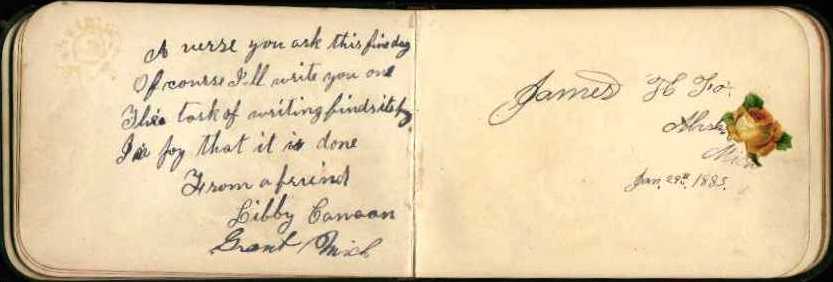 A verse you ask this fine day
Of course I'll write you one
The task of writing finds its
I'm joy that it is done
From a friend
Libby Canaan
Grant Mich
James H
Jan. 29th. 1885.